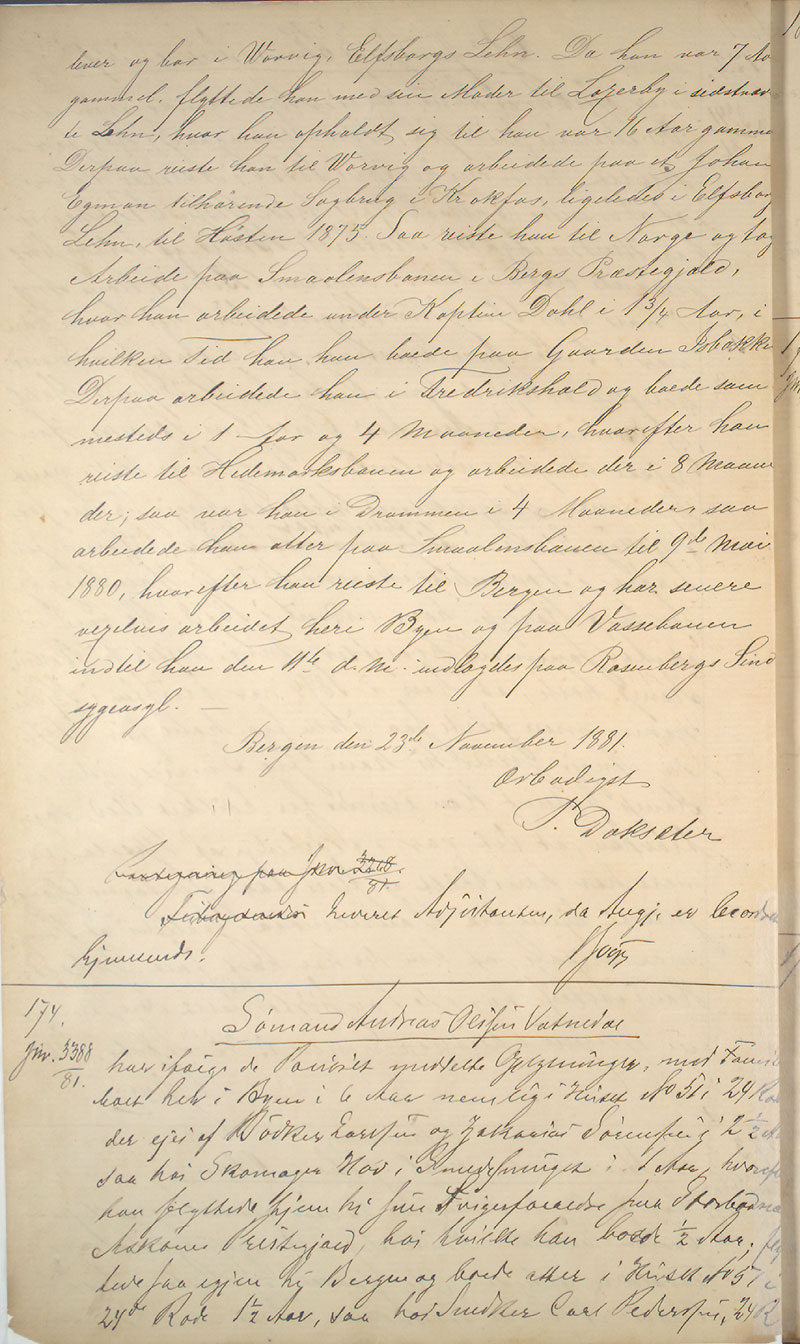 lever og bor i Worvig, Elfsborgs Lehn. Da han var 7 Aar
gammel, flyttede han med sin Moder til Lojerby i sidstnævn
te Lehn, hvor han opholdt sig til han var 16 Aar gammel
Derpaa reiste han til Worvig og arbeidede paa et Johan
Egman tilhörende Sagbrug i Krokfos, ligeledes i Elfsborg
Lehn, til Høsten 1875. Saa reiste han til Norge og tog
Arbeide paa Smaalensbanen i Bergs Præstegjæld,
hvor han arbeidede under Kaptein Dahl i 1 3/4 Aar, i
hvilken Tid han han boede paa Gaarden Isbakke
Derpaa arbeidede han i Fredrikshald og boede sam
mesteds i 1 Aar og 4 Maaneder, hvorefter han
reiste til Hedemarksbanen og arbeidede der i 8 Maane
der; saa var han i Drammen i 4 Maaneder, saa
arbeidede han atter paa Smaalensbanen til 9de Mai
1880, hvorefter han reiste til Bergen og har senere
vexelvis arbeidet her i Byen og paa Vossebanen
indtil han den 11te d. M. indlagdes paa Rosenbergs Sind
sygeasyl. —
Bergen den 23de November 1881.
Ærbødigst
P. Doksæter
paa Jnr 3268/81.
leveret Adjutanten, da Angj. er beordret
hjemsendt.
174.
Jnr. 3388/81.
Sømand Andreas Olsen Vatnedal
har ifølge de Politiet meddelte Oplysninger, med Familie
boet her i Byen i 6 Aar nemlig i Huset No 51 i 24 Rode
der ejes af Bödker Larsen og Zakarias Sörensen i 2 1/2 Aar
saa hos Skomager Hov i i 1 Aar, hvorefter
han flyttede hjem til sine Svigerforældre paa
Askøens Præstegjæld, hos hvilke han boede 1/2 Aar,
tede saa igjen til Bergen og boede atter i Huset No 51 i
24de Rode 1 1/2 Aar, saa hos Snedker Carl Pedersen, 24 R